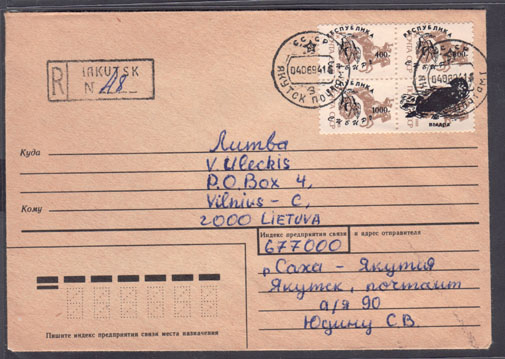 R IRKUTSK
N 48
СССР
040694 18
ЯКУТСК ПОЧТАМТ
РЕСПУБЛИКА
400
1000
Куда
Литва
V. Uleckis
P.O. Box 4,
Кому
Vilnius - C,
2000 LIETUVA
Индекс предприятия связи и адрес отправителя
677000
р Саха - Якутия
Якутск, почтамт
а/я 90
Юдину С.В.
Пишите индекс предприятия связи места назначения